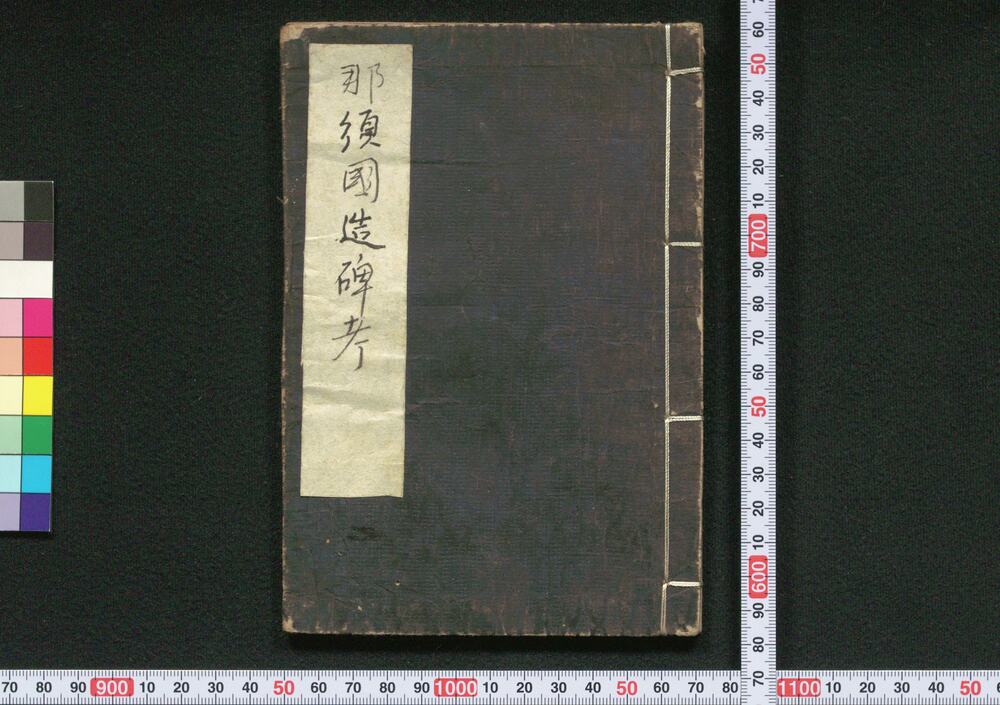 那須國造碑考
60
50
40
30
20
10
700
90
80
70
60
50
40
30
20
10
600
90
80
70
70 80 90 900 10 20 30 40 50 60 70 80 90 1000 10 20 30 40 50 60 70 80 1100 10 20 30 40 50